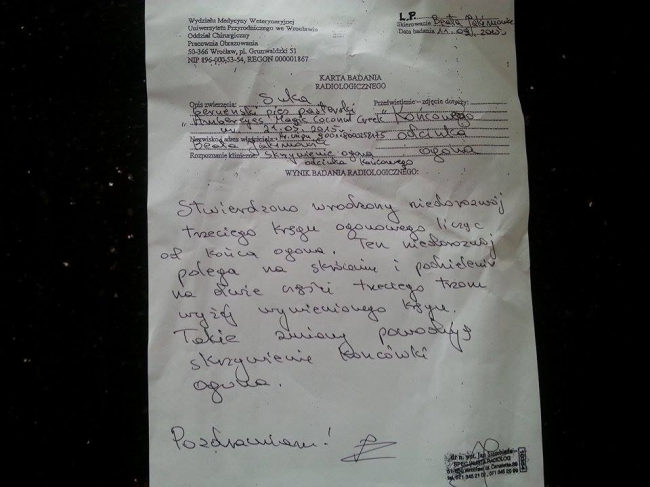 Wydziału Medycyny Weterynaryjnej
Uniwersytetu Przyrodniczego we Wrocławiu
Oddział Chirurgiczny
Pracownia Obrazowania
50-366 Wrocław, pl. Grunwaldzki 51
NIP 896-000-53-54, REGON 000001867
L.P.
Skierowanie Beata
Data badania 11.09.2015r.
KARTA BADANIA
RADIOLOGICZNEGO
Opis zwierzęcia: Suka
berneński pies pasterski
"Ambereyes Magic Coconut Creek"
ur. 21.05.2015r.
Nazwisko i adres właściciela
Beata
Rozpoznanie kliniczne: Skrzywienie ogona
odcinka końcowego
Prześwietlenie - zdjęcie dotyczy:
Końcowego
odcinka
ogona
WYNIK BADANIA RADIOLOGICZNEGO:
Stwierdzono wrodzony niedorozwój
trzeciego kręgu ogonowego licząc
od końca ogona. Ten niedorozwój
polega na skróceniu i podzieleniu
na dwie części trzeciego trzonu
wyżej wymienionego kręgu.
Takie zmiany powodują
skrzywienie końcówki
ogona.
Pozdrawiam!